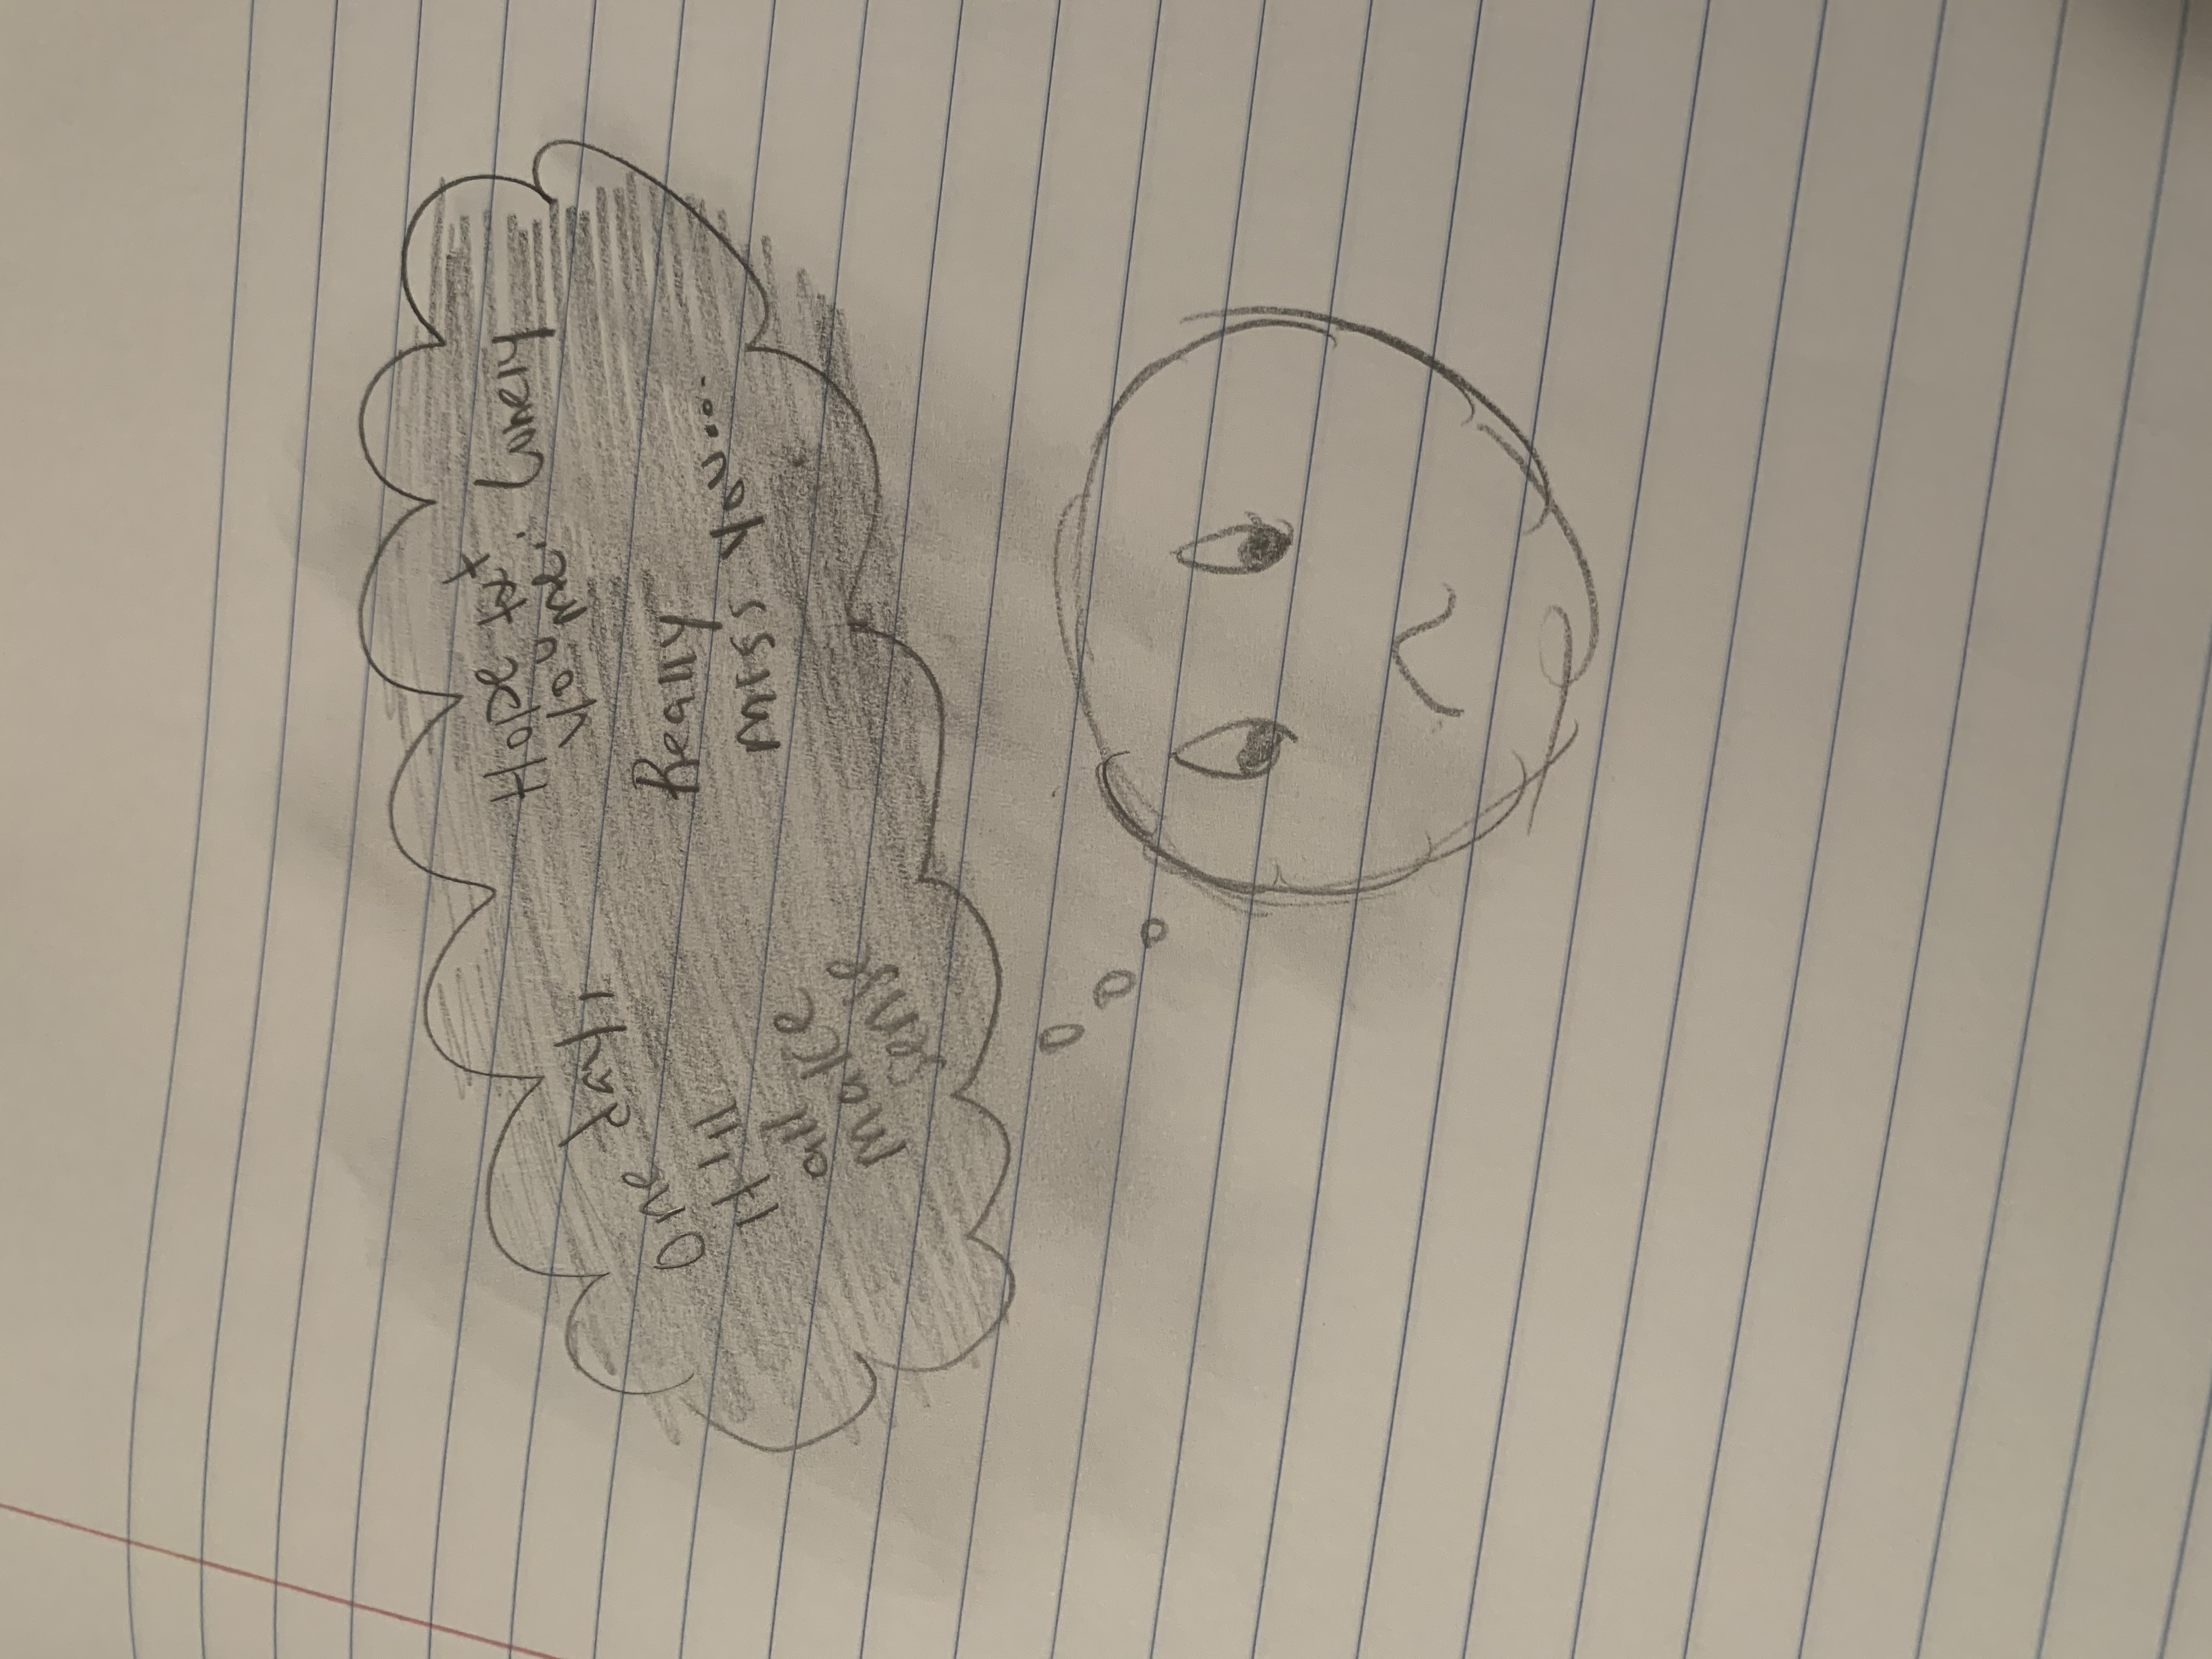 One day,
it'll
all
make
sense
Hope txt
you me. Lonely
Really
miss you...